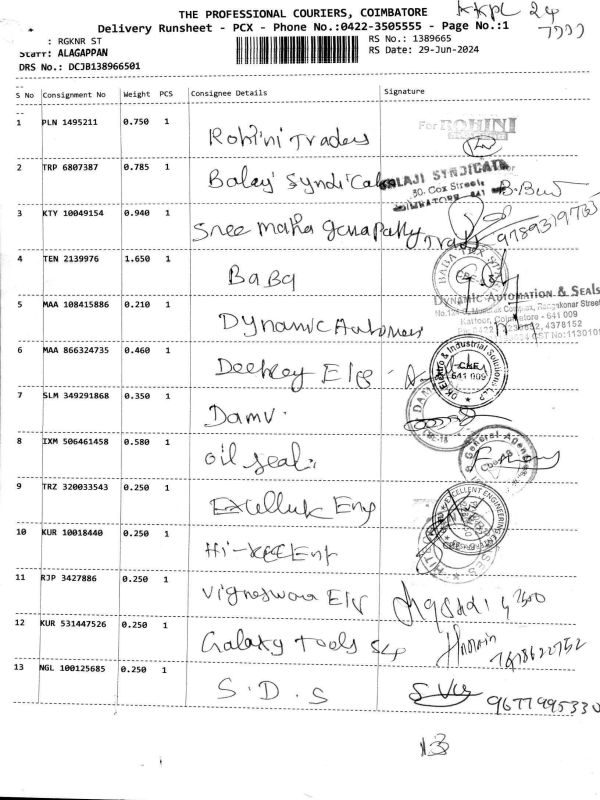 THE PROFESSIONAL COURIERS, COIMBATORE
KKPL 24
Delivery Runsheet - PCX - Phone No.:0422-3505555 - Page No.:1
: RGKNR ST
RS No.: 1389665
Staff: ALAGAPPAN
RS Date: 29-Jun-2024
DRS No.: DCJB138966501
S No Consignment No Weight PCS Consignee Details Signature
1 PLN 1495211 0.750 1 Rohini Traders For ROHINI
2 TRP 6807387 0.785 1 Balaji Syndicate BALAJI SYNDICATE
30, Cox Street
COIMBATORE 641
3 KTY 10049154 0.940 1 Sree Maha Ganapathy Trads 9789319733
4 TEN 2139976 1.650 1 BaBa
5 MAA 108415886 0.210 1 Dynamic Automen DYNAMIC AUTOMATION & SEALS
Complex, Rangakonar Street
Kattoor, Coimbatore - 641 009
4378152
6 MAA 866324735 0.460 1 Industrial Solutions LLP
CBE
641 009
7 SLM 349291868 0.350 1 Damu. DAM
8 IXM 506461458 0.580 1 Oil Seal General Agency
9 TRZ 320033543 0.250 1 Excellent Eng EXCELLENT ENGINEERING
10 KUR 10018440 0.250 1 Hi-
11 RJP 3427886 0.250 1 Vigneswara
12 KUR 531447526 0.250 1 Galaxy Tools
13 NGL 100125685 0.250 1 S.D.S 9677995330